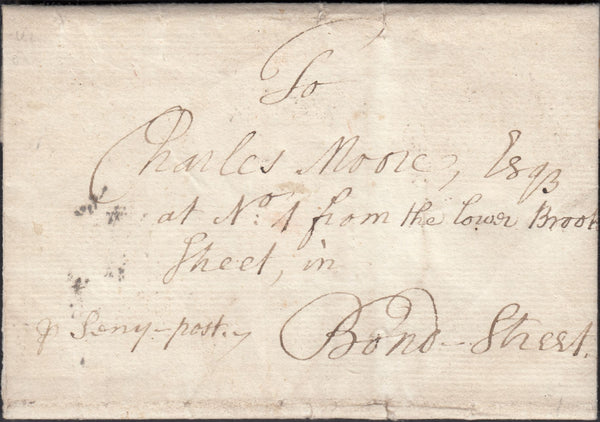 To
Charles Moore, Esqr
at No. 1 from the lower Brook
Street, in
p Peny-post.
Bond-Street.